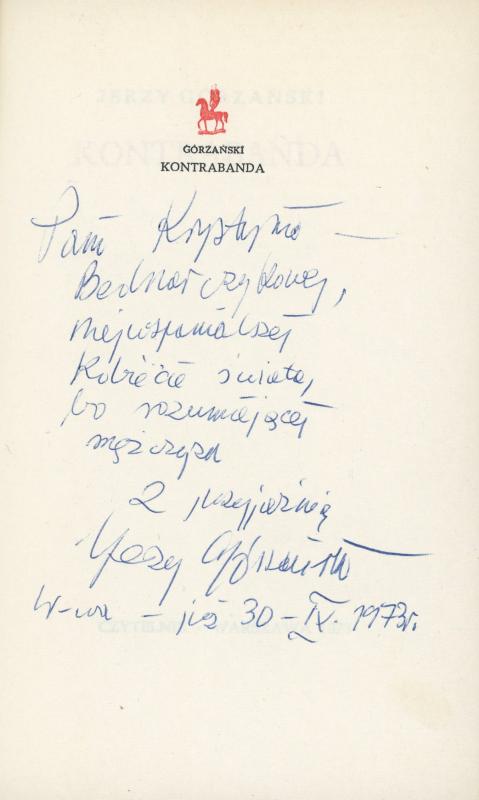 GÓRZAŃSKI
KONTRABANDA
Pani Krystynie
Bednarczykowej,
najwspanialszej
Kobiecie świata,
bo rozumiejącej
mężczyzn
z przyjaźnią
Jerzy Górzański
W-wa – już 30 – IX. 1973r.